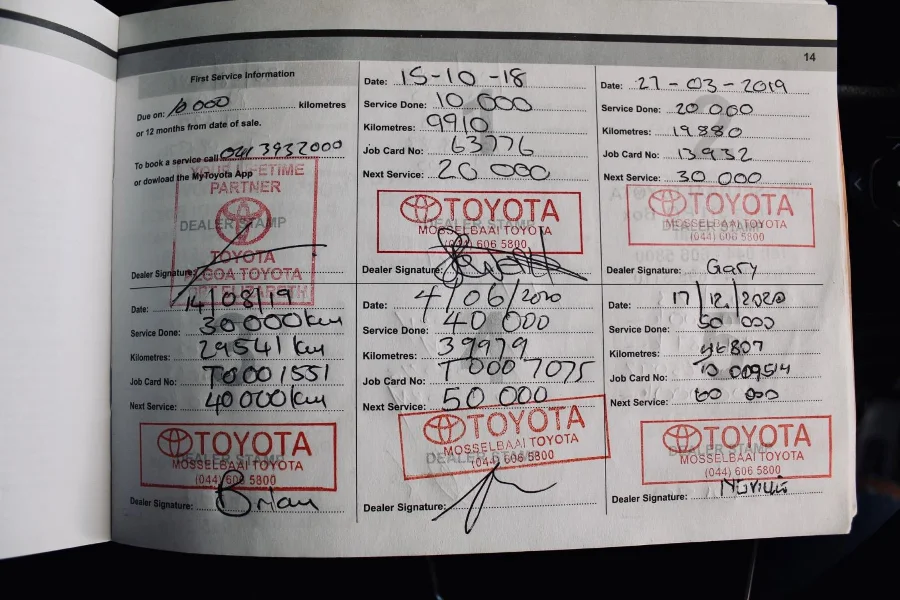 14
First Service Information
Due on: 10 000 kilometres
or 12 months from date of sale.
To book a service call 041 3932000
or dowload the MyToyota App
YOUR LIFETIME
PARTNER
DEALER STAMP
TOYOTA
ALGOA TOYOTA
Dealer Signature:
Date: 15-10-18
Service Done: 10 000
Kilometres: 9910
Job Card No: 63776
Next Service: 20 000
TOYOTA
DEALER STAMP
MOSSELBAAI TOYOTA
(044) 606 5800
Dealer Signature:
Date: 27-03-2019
Service Done: 20 000
Kilometres: 19880
Job Card No: 13932
Next Service: 30 000
TOYOTA
DEALER STAMP
MOSSELBAAI TOYOTA
(044) 606 5800
Dealer Signature: Gary
Date: 14/08/19
Service Done: 30 000km
Kilometres: 29541 km
Job Card No: T0001551
Next Service: 40 000km
TOYOTA
DEALER STAMP
MOSSELBAAI TOYOTA
(044) 606 5800
Dealer Signature: Brian
Date: 4/06/2020
Service Done: 40 000
Kilometres: 39979
Job Card No: T000 7075
Next Service: 50 000
TOYOTA
DEALER STAMP
MOSSELBAAI TOYOTA
(044) 606 5800
Dealer Signature:
Date: 17/12/2020
Service Done: 50 000
Kilometres:
Job Card No:
Next Service: 60 000
TOYOTA
DEALER STAMP
MOSSELBAAI TOYOTA
(044) 606 5800
Dealer Signature: